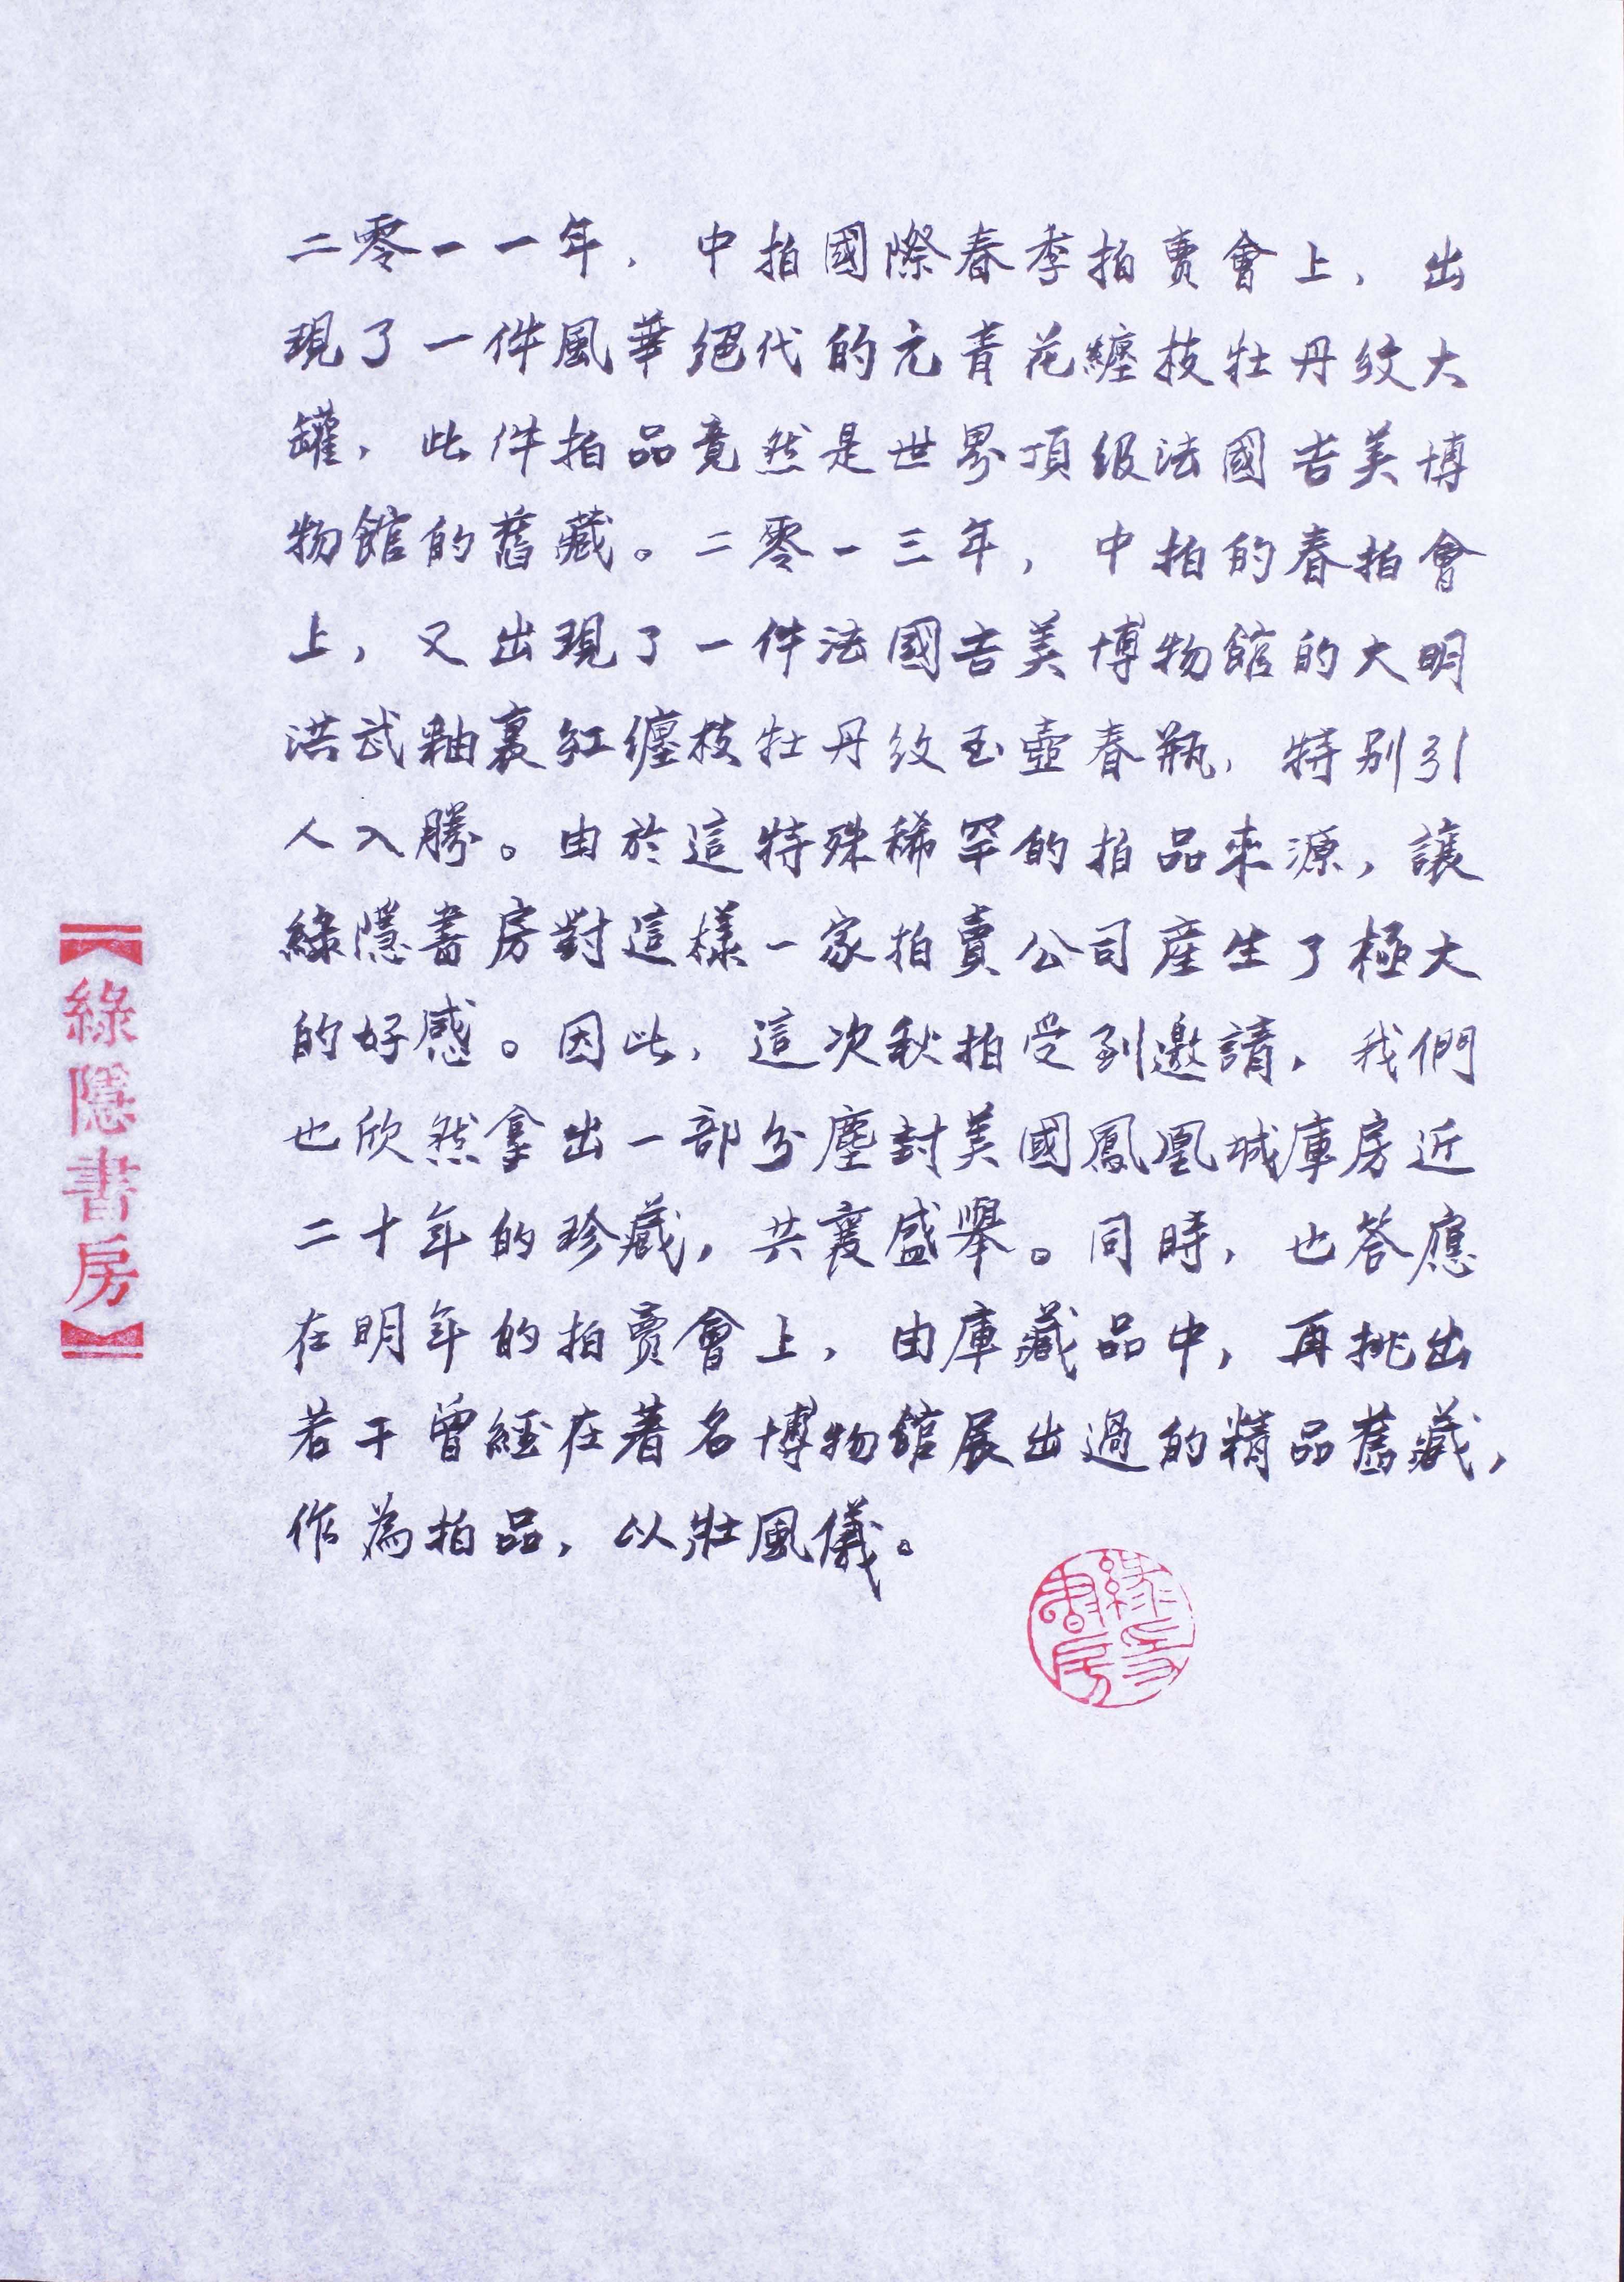 二零一一年，中拍國際春季拍賣會上，出
現了一件風華絕代的元青花纏枝牡丹紋大
罐，此件拍品竟然是世界頂級法國吉美博
物館的舊藏。二零一三年，中拍的春拍會
上，又出現了一件法國吉美博物館的大明
洪武釉裏紅纏枝牡丹紋玉壺春瓶，特別引
人入勝。由於這特殊稀罕的拍品來源，讓
綠隱書房對這樣一家拍賣公司產生了極大
的好感。因此，這次秋拍受到邀請，我們
也欣然拿出一部分塵封美國鳳凰城庫房近
二十年的珍藏，共襄盛舉。同時，也答應
在明年的拍賣會上，由庫藏品中，再挑出
若干曾經在著名博物館展出過的精品舊藏，
作為拍品，以壯風儀。
【綠隱書房】